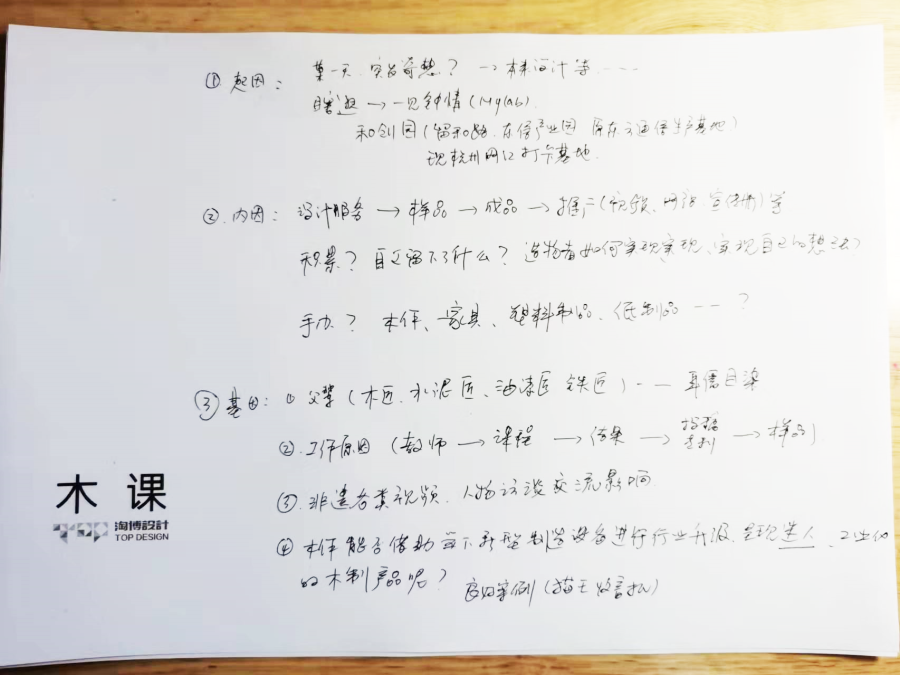 ① 起因： 某一天, 突发奇想？ → 本来设计等 ----
→ 一见钟情 (My lab).
和创园 (留和路.
现杭州网红打卡基地.
② 内因： 设计服务 → 样品 → 成品 → 推广 (视频、网站 宣传册) 等
积累？ 自己留下了什么？ 造物者如何实现实现、实现自己的想法？
手办？ 木作、家具、塑料制品、纸制品 --- ?
③ 基因： ① 父辈 (木匠、水泥匠、油漆匠 铁匠) -- 耳濡目染
②. 工作原因 (教师 → 课程 → 结果 → 专利 → 样品)
③. 非遗各类视频、人物访谈交流影响
④ 本作能否借助当下新型制造设备进行行业升级, 呈现迷人、工业化
的木制产品呢？ 良好案例 (猫王收音机)
木 课
淘博設計
TOP DESIGN